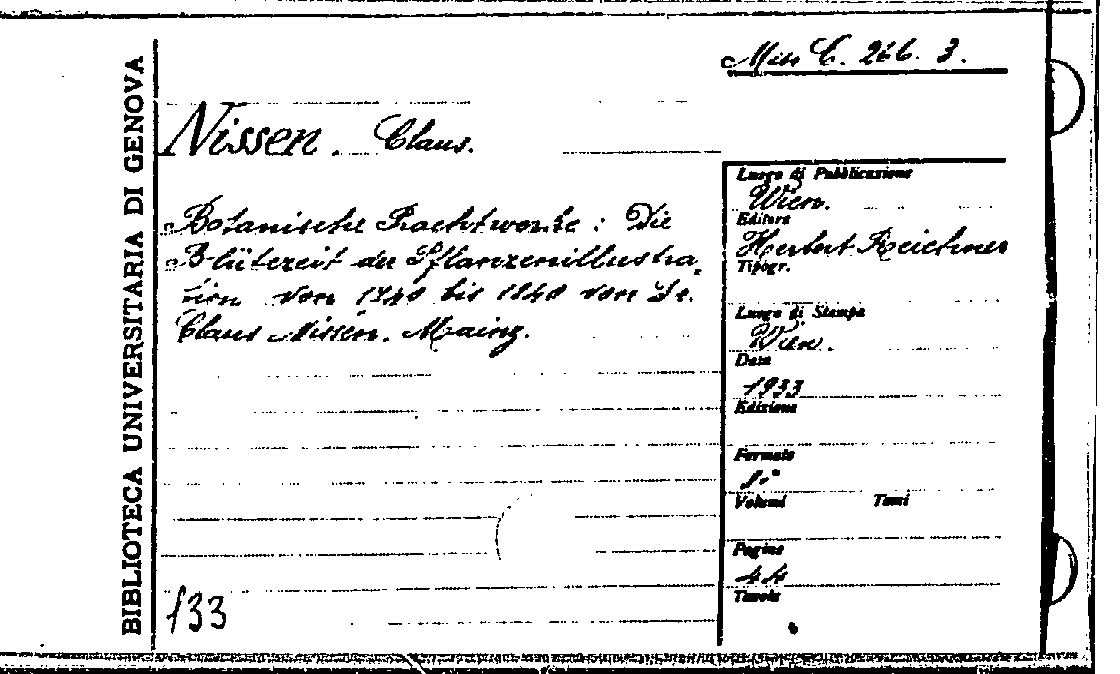 BIBLIOTECA UNIVERSITARIA DI GENOVA
Misc C. 266. 3.
Nissen. Claus.
Botanische Prachtwerke : Die
Blütezeit der Pflanzenillustra,
tion von 1740 bis 1840 von Dr.
Claus Nissen. Mainz.
133
Luogo di Pubblicazione
Wien.
Editore
Herbert Reichner
Tipogr.
Luogo di Stampa
Wien.
Data
1933
Edizione
Formato
8.°
Volumi Tomi
Pagine
44
Tavole